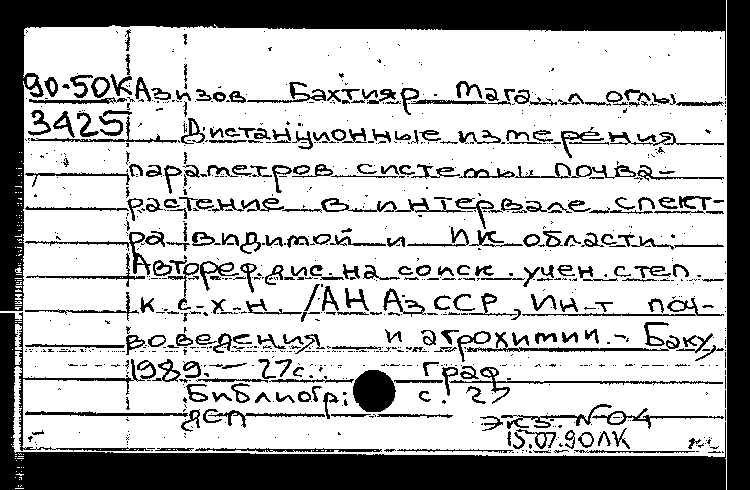 90-50К Азизов Бахтияр оглы
3425 Дистанционные измерения
параметров системы почва-
растение в интервале спект-
ра видимой и ИК области:
Автореф. дис. на соиск. учен. степ.
к. с-х-н. /АН АзССР, Ин-т поч-
воведения и агрохимии. - Баку,
1989. - 27с.: Граф.
Библиогр: с. 27
ДСП
экз. N04
15.07.90ЛК